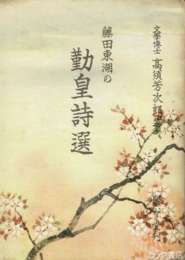 文學博士 高須芳次郎
藤田東湖の
勤皇詩選